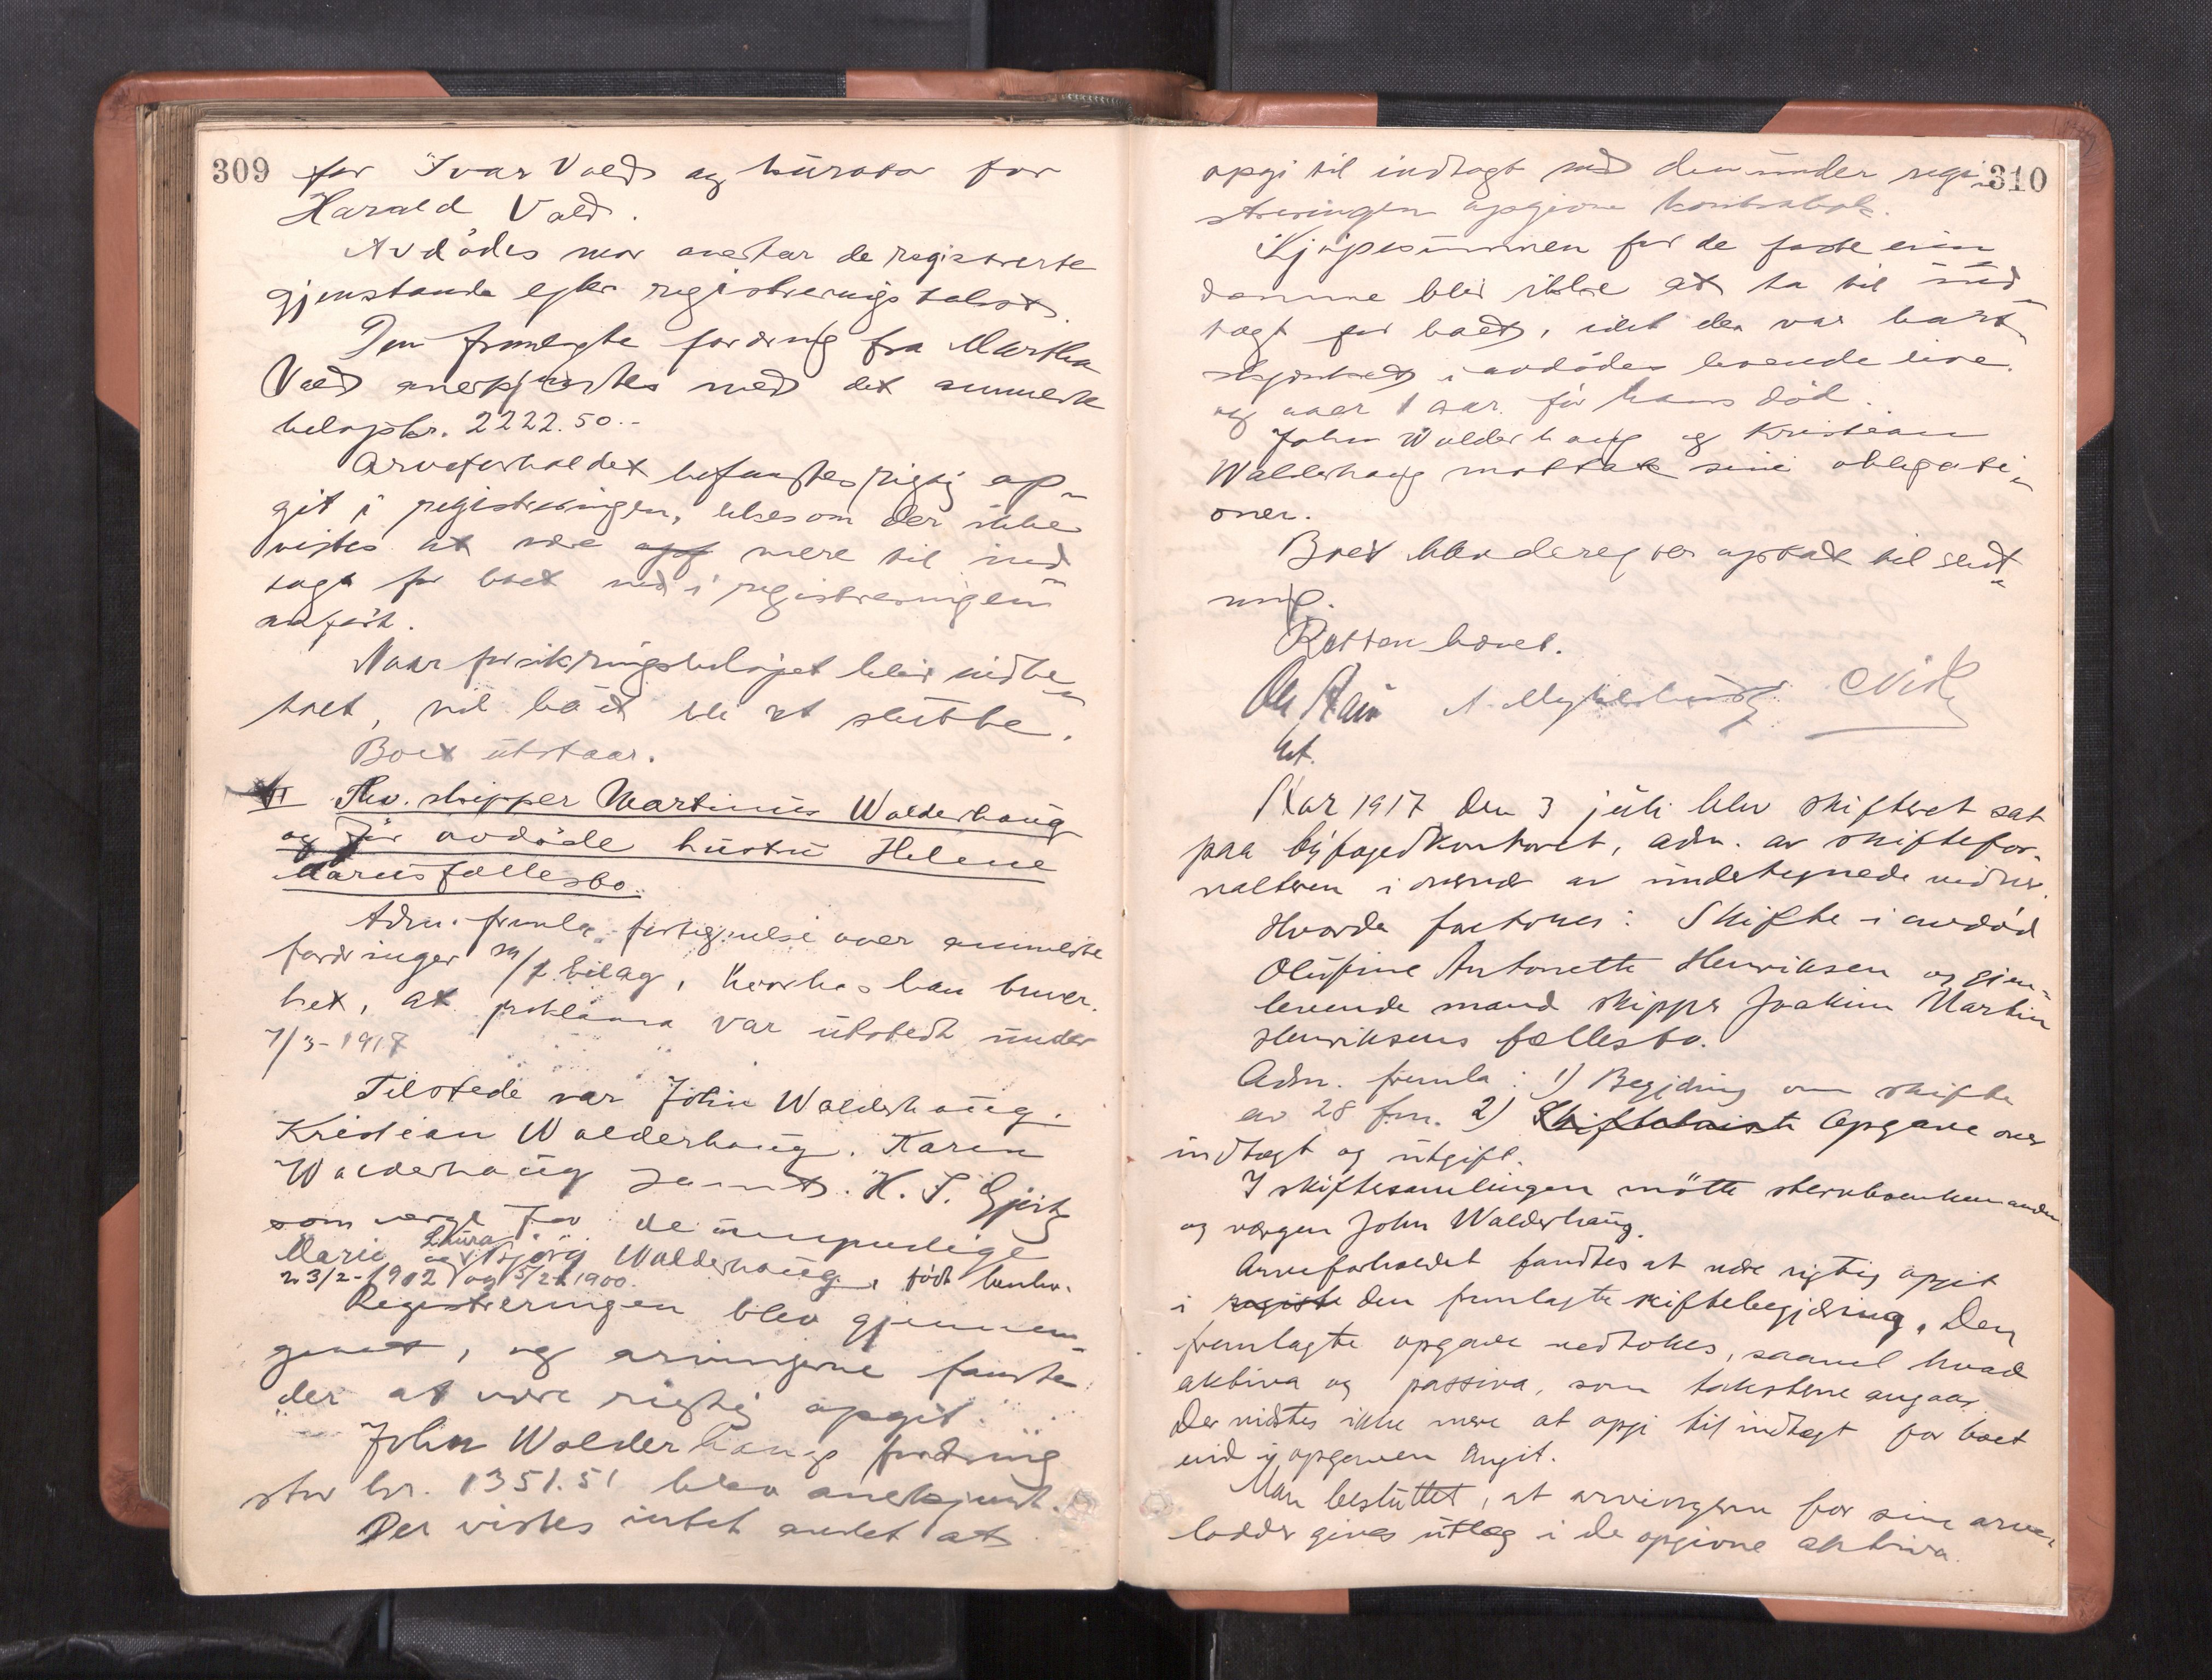 309
for Ivar Vold og kurator for
Harald Vold.
Avdødes mor overtar de registrerte
gjenstande efter registreringstakst.
Den fremlagte fordring fra Martha
Vold anerkjentes med det anmeldte
beløp kr. 2222.50.-
Arveforholdet befandtes rigtig op-
git i registreringen, likesom der ikke
vistes at være mere til ind-
tægt for boet end i registreringen
anført.
Naar forsikringsbeløpet blir indbe-
talt, vil boet bli at slutte.
Boet utstaar.
VI Fhv. skipper Martinus Walderhaug
og før avdøde hustru Helene
Marius fællesbo.
Adm. fremla fortegnelse over anmeldte
fordringer m/7 bilag, hvorhos han bemer-
ket, at proklama var utstedt under
7/3-1917
Tilstede var John Walderhaug,
Kristian Walderhaug, Karen
Walderhaug samt H. S. Gjortz
som verge for de umyndige
Marie Laura og Bjørg Walderhaug, født henhv.
23/2-1902 og 5/21900.
Registreringen blev gjennem-
gaaet, og arvingerne fandtes
der at være rigtig opgit.
John Walderhaugs fordring
stor kr. 1351.51 blev anerkjent.
Der vistes intet andet at
310
opgi til indtægt end den under regi-
streringen opgivne
Kjøpesummen for de faste eien-
domme blir ikke at ta til ind-
tægt for boet, idet der var bort-
skjøtet i avdødes levende live
og over 1 aar før hans død.
John Walderhaug og Kristian
Walderhaug mottok sine obligati-
oner.
Boet blev derefter optat til slut-
ning.
Retten hævet.
Skt.
Aar 1917 den 3 juli blev skifteret sat
paa byfogedkontoret, adm. av skiftefor-
valteren i overvær av undertegnede vidner.
Hvorda foretokes: Skifte i avdød
Olufine Antonette Henriksen og gjen-
levende mand skipper Joakim Martin
Henriksens fællesbo.
Adm. fremla: 1) Begjæring om skifte
av 28 f.m. 2) Opgave over
indtægt og utgift.
I skiftesamlingen møtte stervboenkemanden
og vergen John Walderhaug.
Arveforholdet fandtes at være rigtig opgit
i registe den fremlagte skiftebegjæring. Den
fremlagte opgave vedtokes, saavel hvad
aktiva og passiva, som taksterne angaar.
Der vidstes ikke mere at opgi til indtægt for boet
end i opgaven angit.
Man besluttet, at arvingerne for sine arve-
lodder gives utlæg i de opgivne aktiva.